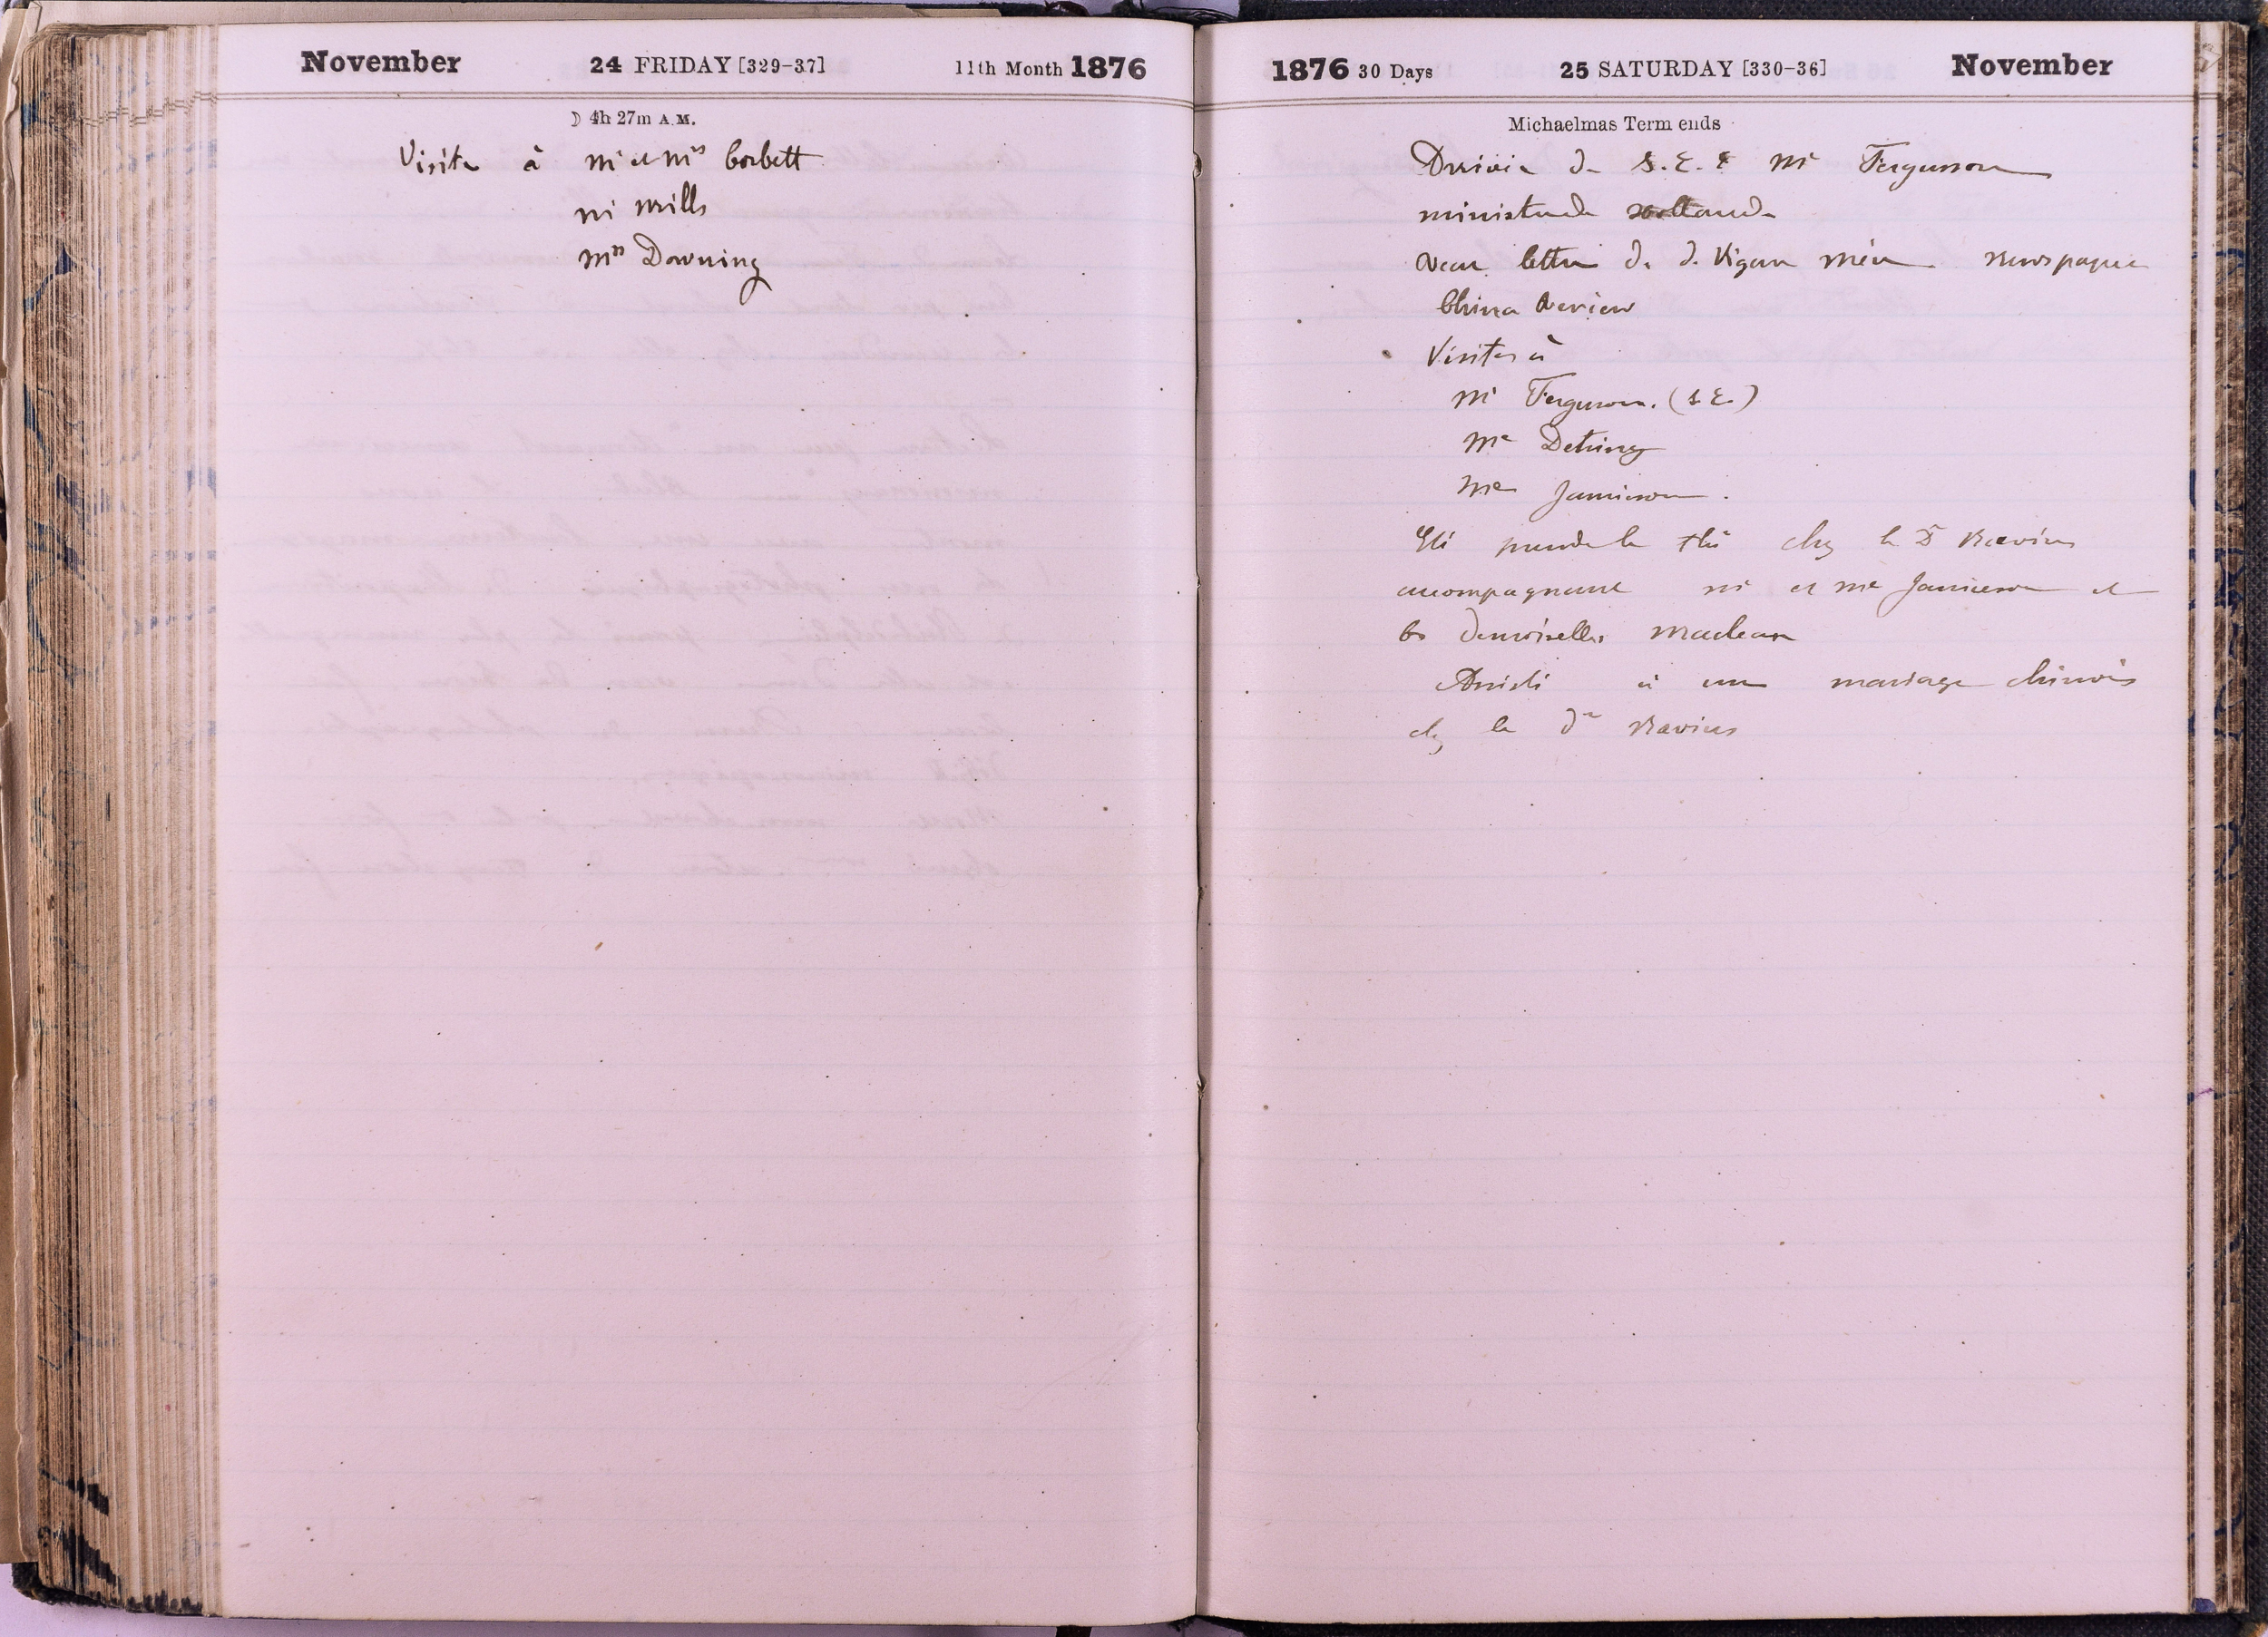 November 24 FRIDAY [329-37] 11th Month 1876
☽ 4h 27m A.M.
Visite à Mr et Mrs Corbett
Mr Mills
Mrs Downing
1876 30 Days 25 SATURDAY [330-36] November
Michaelmas Term ends
Arrivée de S.E. Mr Fergusson
ministre de Hollande
Reçu lettre de de Vigan mère newspaper
China Review
Visites à
Mr Ferguson. (S.E.)
Me Detring
Me Jamieson.
Été prendre le thé chez le Dr
accompagnant Mr et Me Jamieson et
les demoiselles Maclean
Assisté à un mariage chinois
chez le Dr